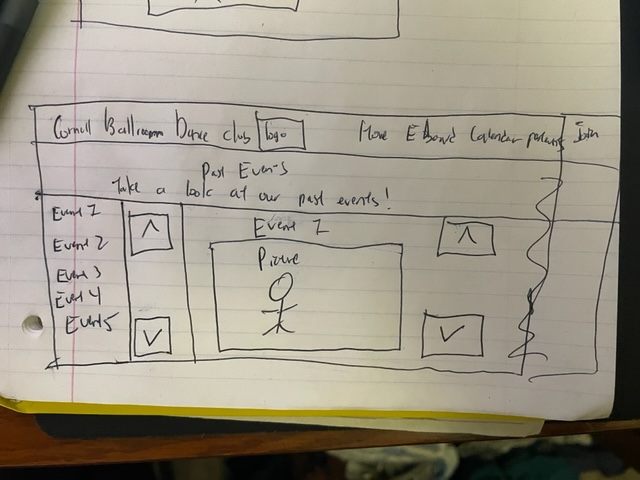 Cornell Ballroom Dance club logo Home E Board Calendar Join
Past Events
Take a look at our past events!
Event 1
Event 2
Event 3
Event 4
Event 5
Event 1
Picture